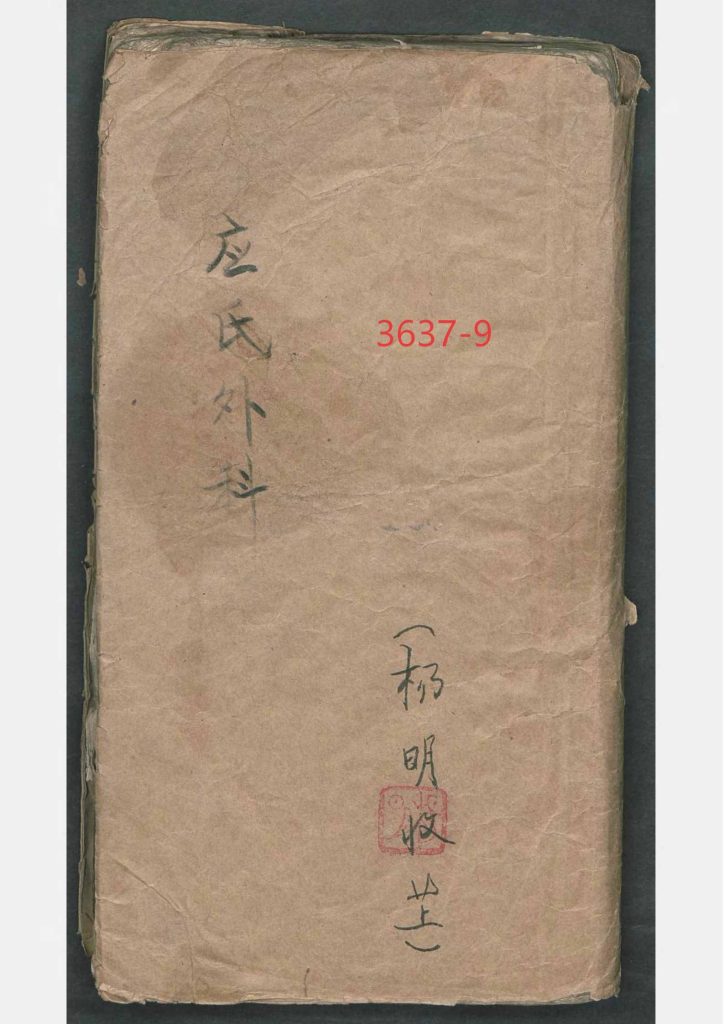 应氏外科
3637-9
（杨明收